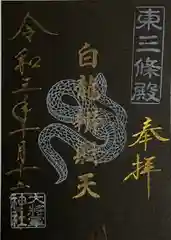 東三條殿
奉拝
白龍辨財天
令和三年十月十
大将軍
神社